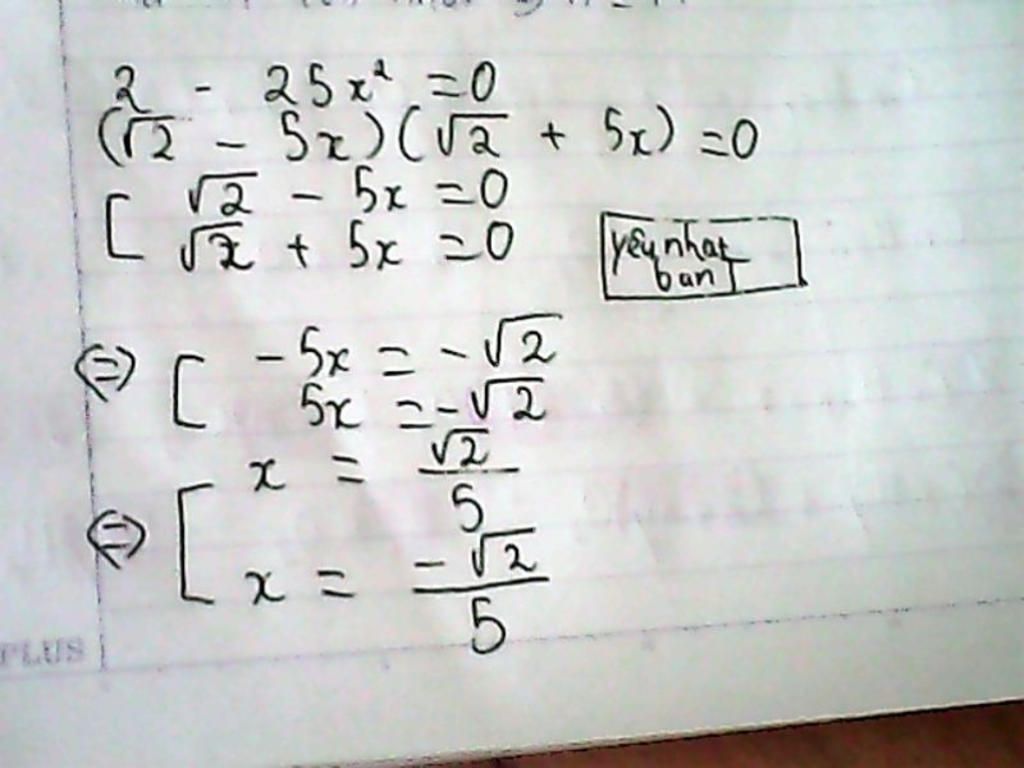 2 - 25x² = 0
(√2 - 5x)(√2 + 5x) = 0
[ √2 - 5x = 0
√2 + 5x = 0
yeu nhat
ban
⇔ [ -5x = -√2
5x = -√2
⇔ [ x = √2/5
x = -√2/5
PLUS